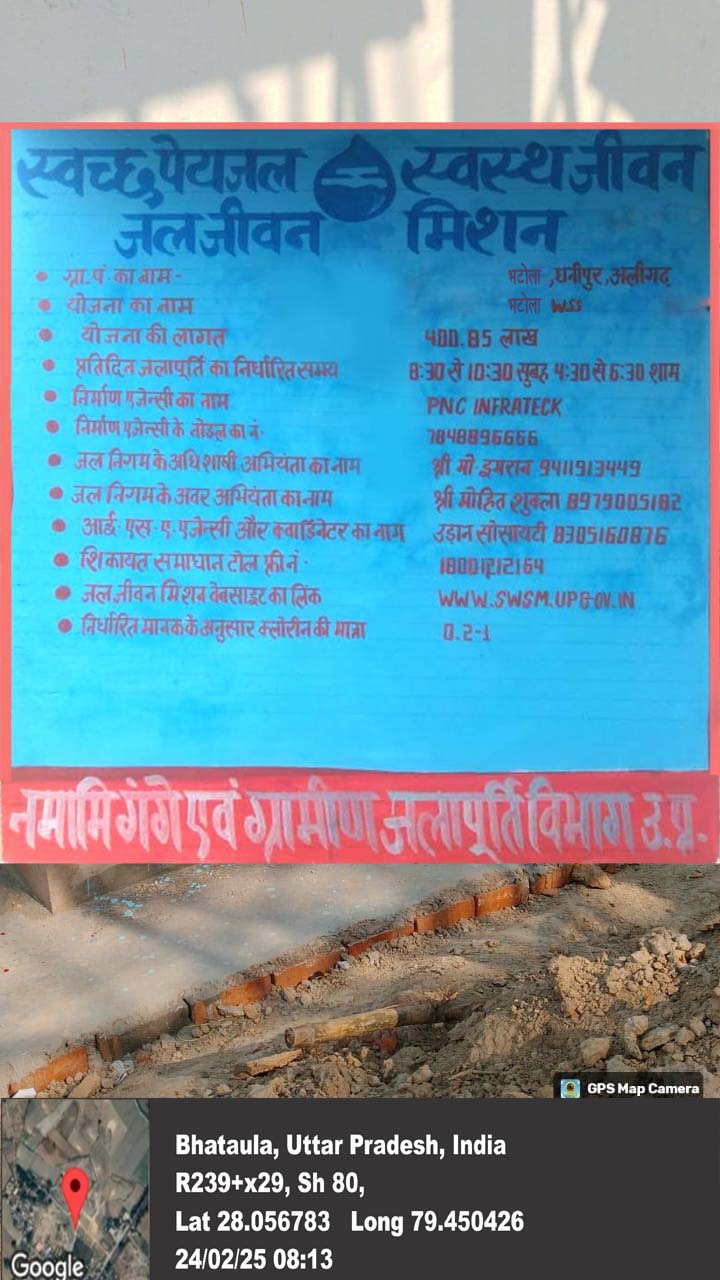 स्वच्छ पेयजल स्वस्थ जीवन
जल जीवन मिशन
ग्रा.पं. का नाम - भटोला ,धनीपुर,अलीगढ
योजना का नाम भटोला WSS
योजना की लागत 400.85 लाख
प्रतिदिन जलापूर्ति का निर्धारित समय 8:30 से 10:30 सुबह 4:30 से 6:30 शाम
निर्माण एजेन्सी का नाम PNC INFRATECK
निर्माण एजेन्सी के नोडल का नं. 7848896666
जल निगम के अधिशाषी अभियंता का नाम श्री मो. इमरान 9411913449
जल निगम के अवर अभियंता का नाम श्री मोहित शुक्ला 8979005182
आई. एस. ए. एजेन्सी और क्वार्डिनेटर का नाम उड़ान सोसायटी 8305160876
शिकायत समाधान टोल फ्री नं. 18001212164
जल जीवन मिशन वेबसाइट का लिंक WWW.SWSM.UPGOV.IN
निर्धारित मानक के अनुसार क्लोरीन की मात्रा 0.2-1
नमामि गंगे एवं ग्रामीण जलापूर्ति विभाग उ.प्र.
GPS Map Camera
Bhataula, Uttar Pradesh, India
R239+x29, Sh 80,
Lat 28.056783 Long 79.450426
24/02/25 08:13
Google